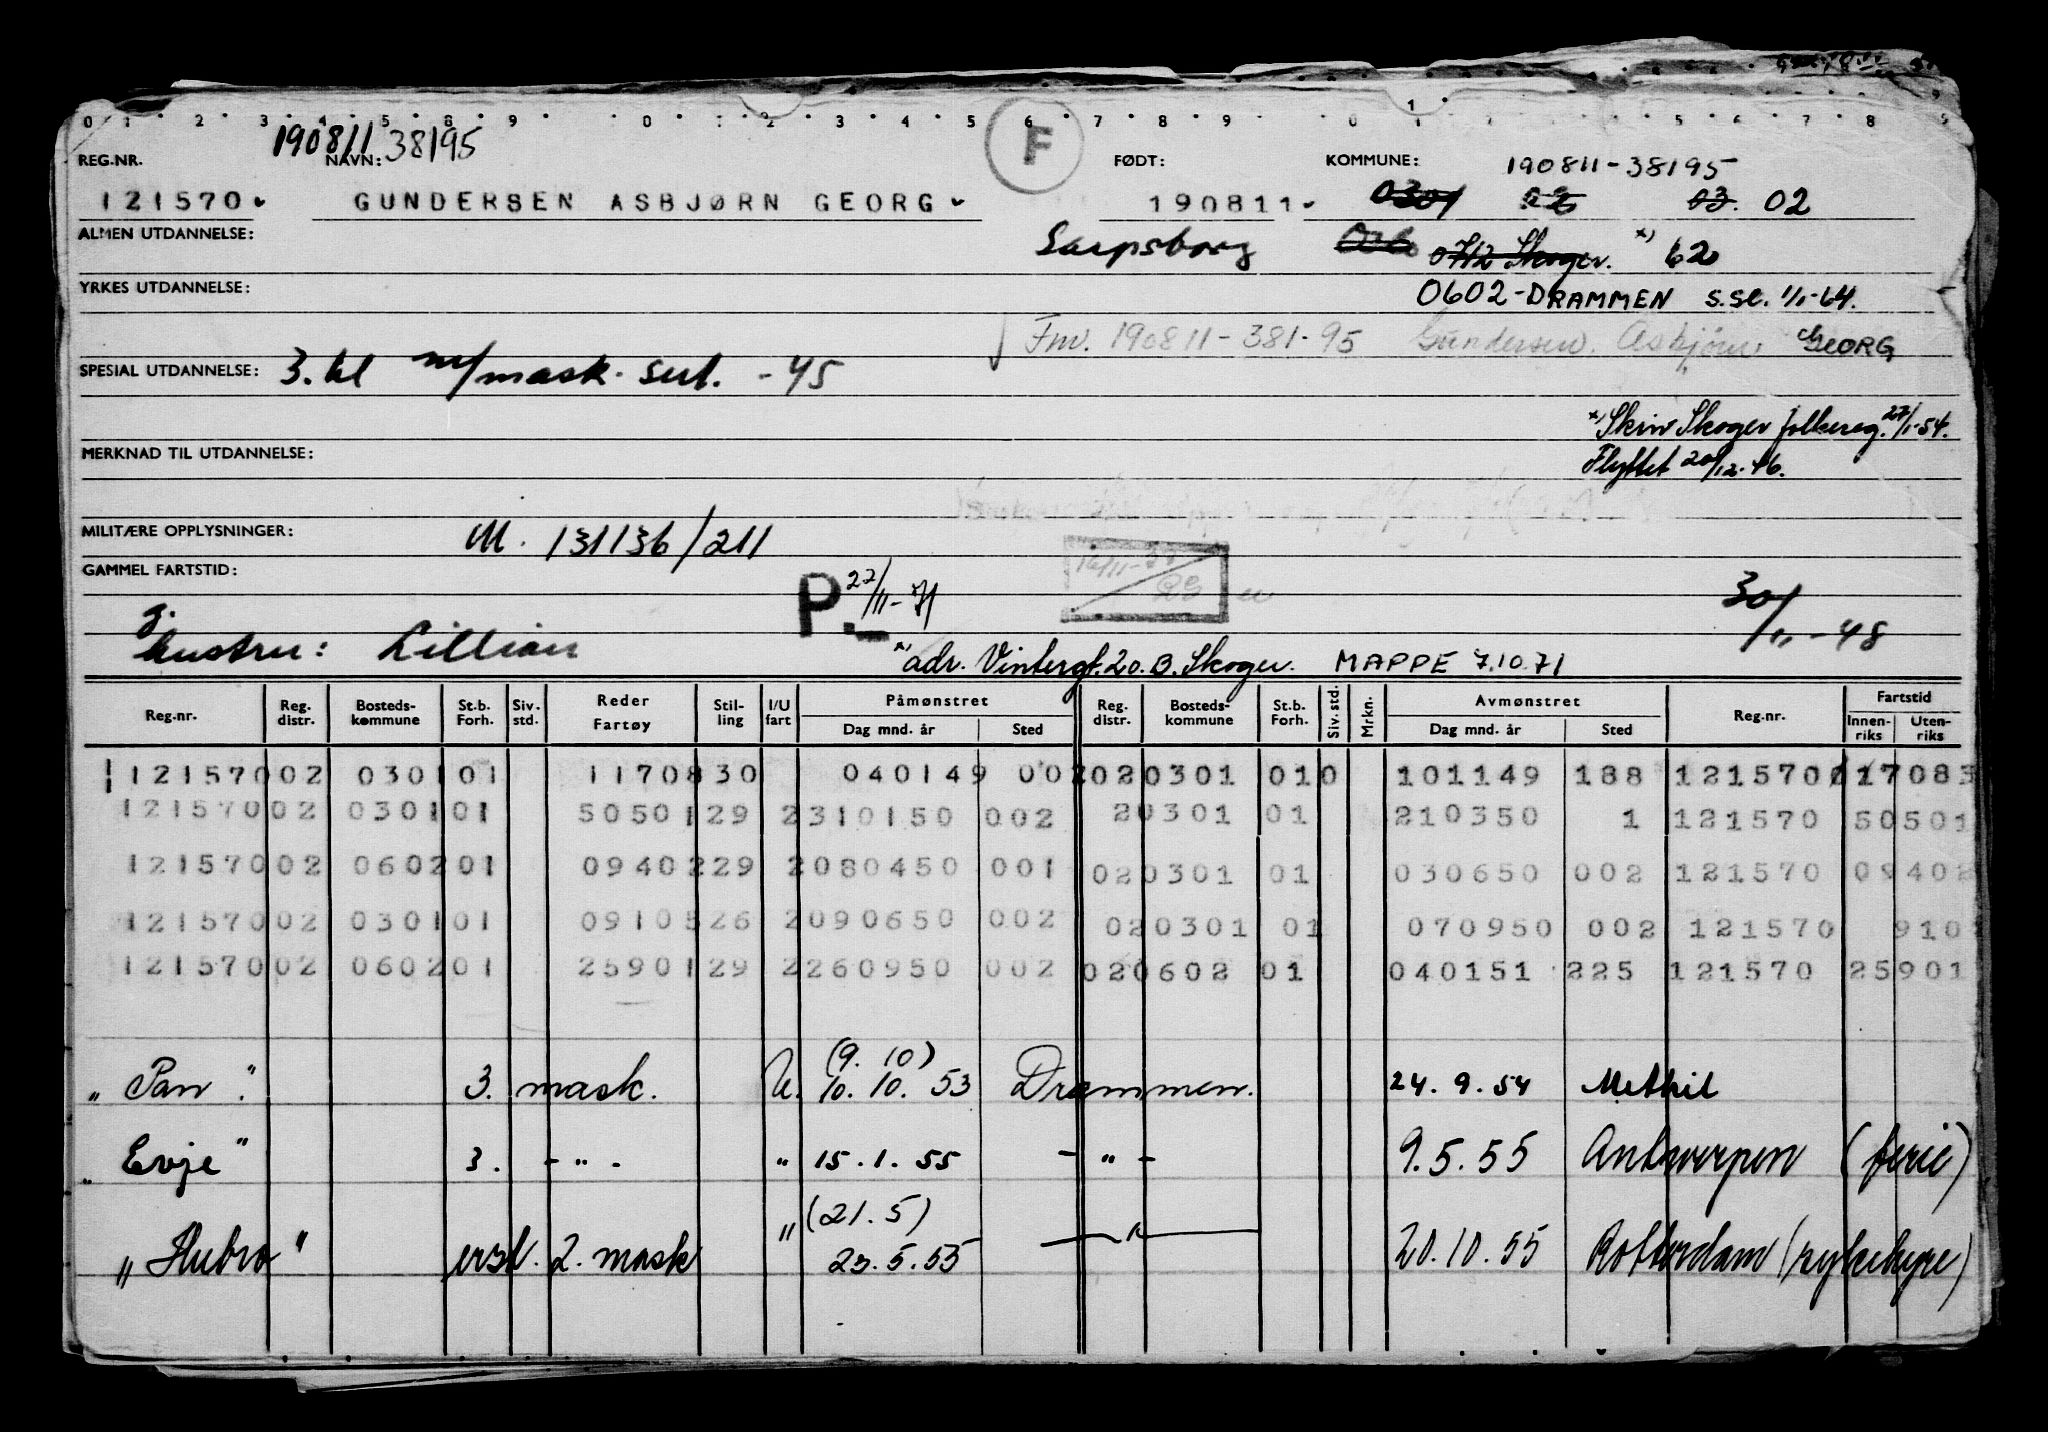 0 1 2 3 4 5 8 9 0 1 2 3 4 5 6 7 8 9 0 1 5 6 7 8 9
190811 38195
F
REG.NR. NAVN: FØDT: KOMMUNE: 190811-38195
121570 GUNDERSEN ASBJØRN GEORG 190811 0301 03. 02
ALMEN UTDANNELSE: Sarpsborg 0712 Skoger. x) 62
YRKES UTDANNELSE: 0602-DRAMMEN S.SE. 1/1-64.
Fnv. 190811-381-95 Gundersen. Asbjørn GEORG
SPESIAL UTDANNELSE: 3. kl m/mask. sert. -45
x) Skriv Skoger folkereg. 27/1-54.
MERKNAD TIL UTDANNELSE: Flyttet 20/12-46.
MILITÆRE OPPLYSNINGER: M. 131136/211
GAMMEL FARTSTID:
P. 22/11-71 30/11-48
g. hustru: Lillian
x) adr. Vintergt. 20. B. Skoger. MAPPE 7.10.71
Reg.nr. Reg. distr. Bosteds-kommune St.b. Forh. Siv. std. Reder Fartøy Stil-ling I/U fart Påmønstret Dag mnd. år Sted Reg. distr. Bosteds-kommune St.b. Forh. Siv. std. Mrkn. Avmønstret Dag mnd. år Sted Reg.nr. Fartstid Innen-riks Uten-riks
121570 02 0301 01 11708 30 040149 002 02 0301 01 0 101149 188 121570 17083
121570 02 0301 01 50501 29 2 310150 002 2 0301 01 210350 1 121570 50501
121570 02 0602 01 09402 29 2 080450 001 02 0301 01 030650 002 121570 09402
121570 02 0301 01 09105 26 2 090650 002 02 0301 01 070950 002 121570 910
121570 02 0602 01 25901 29 2 260950 002 02 0602 01 040151 225 121570 25901
(9. 10)
"Pan". 3. mask. U. 10. 10. 53 Drammen. 24. 9. 54 Methil
"Evje" 3. - " - " 15. 1. 55 - " - 9. 5. 55 Antwerpen (ferie)
(21. 5)
"Hubro" erst. 2. mask " 23. 5. 55 — " — 20. 10. 55 Rotterdam (sykehype)